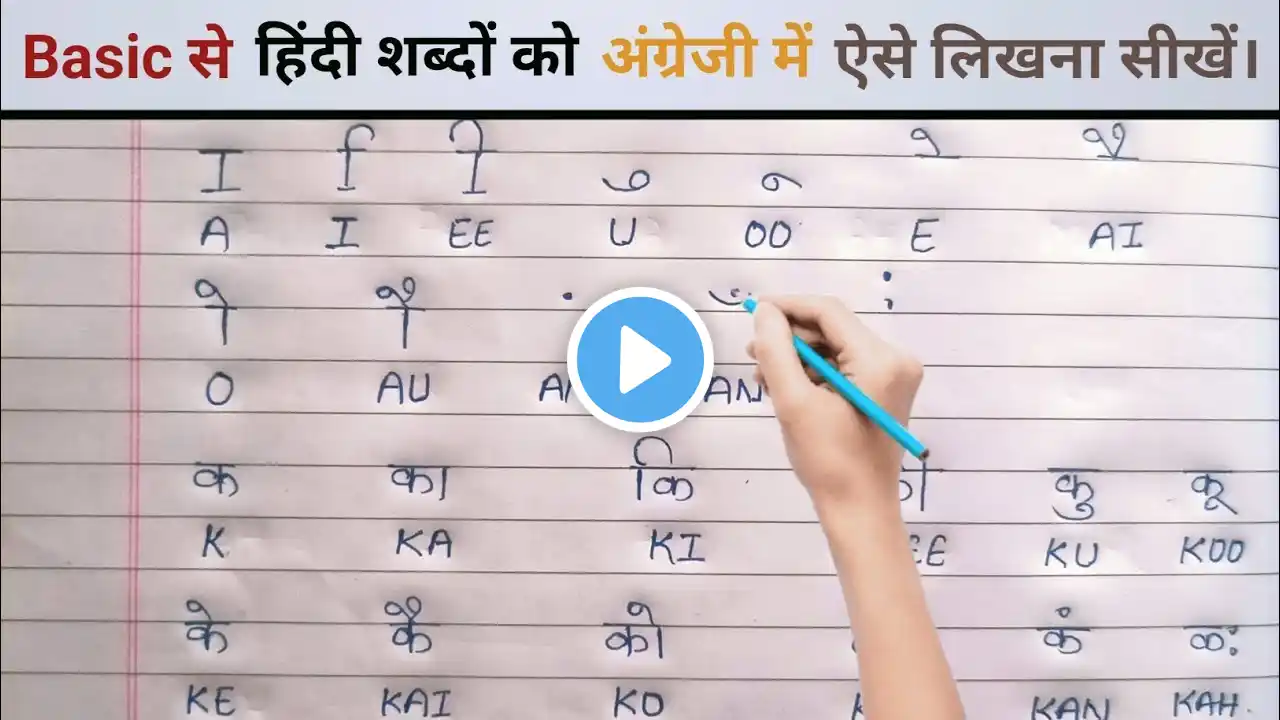 Basic से हिंदी शब्दों को अंग्रेजी में ऐसे लिखना सीखें।
ा ि ी ु ू े ै
A I EE U OO E AI
ो ौ ं ँ ः
O AU AN
क का कि कु कू
K KA KI KU KOO
के कै को कं कः
KE KAI KO KAN KAH.